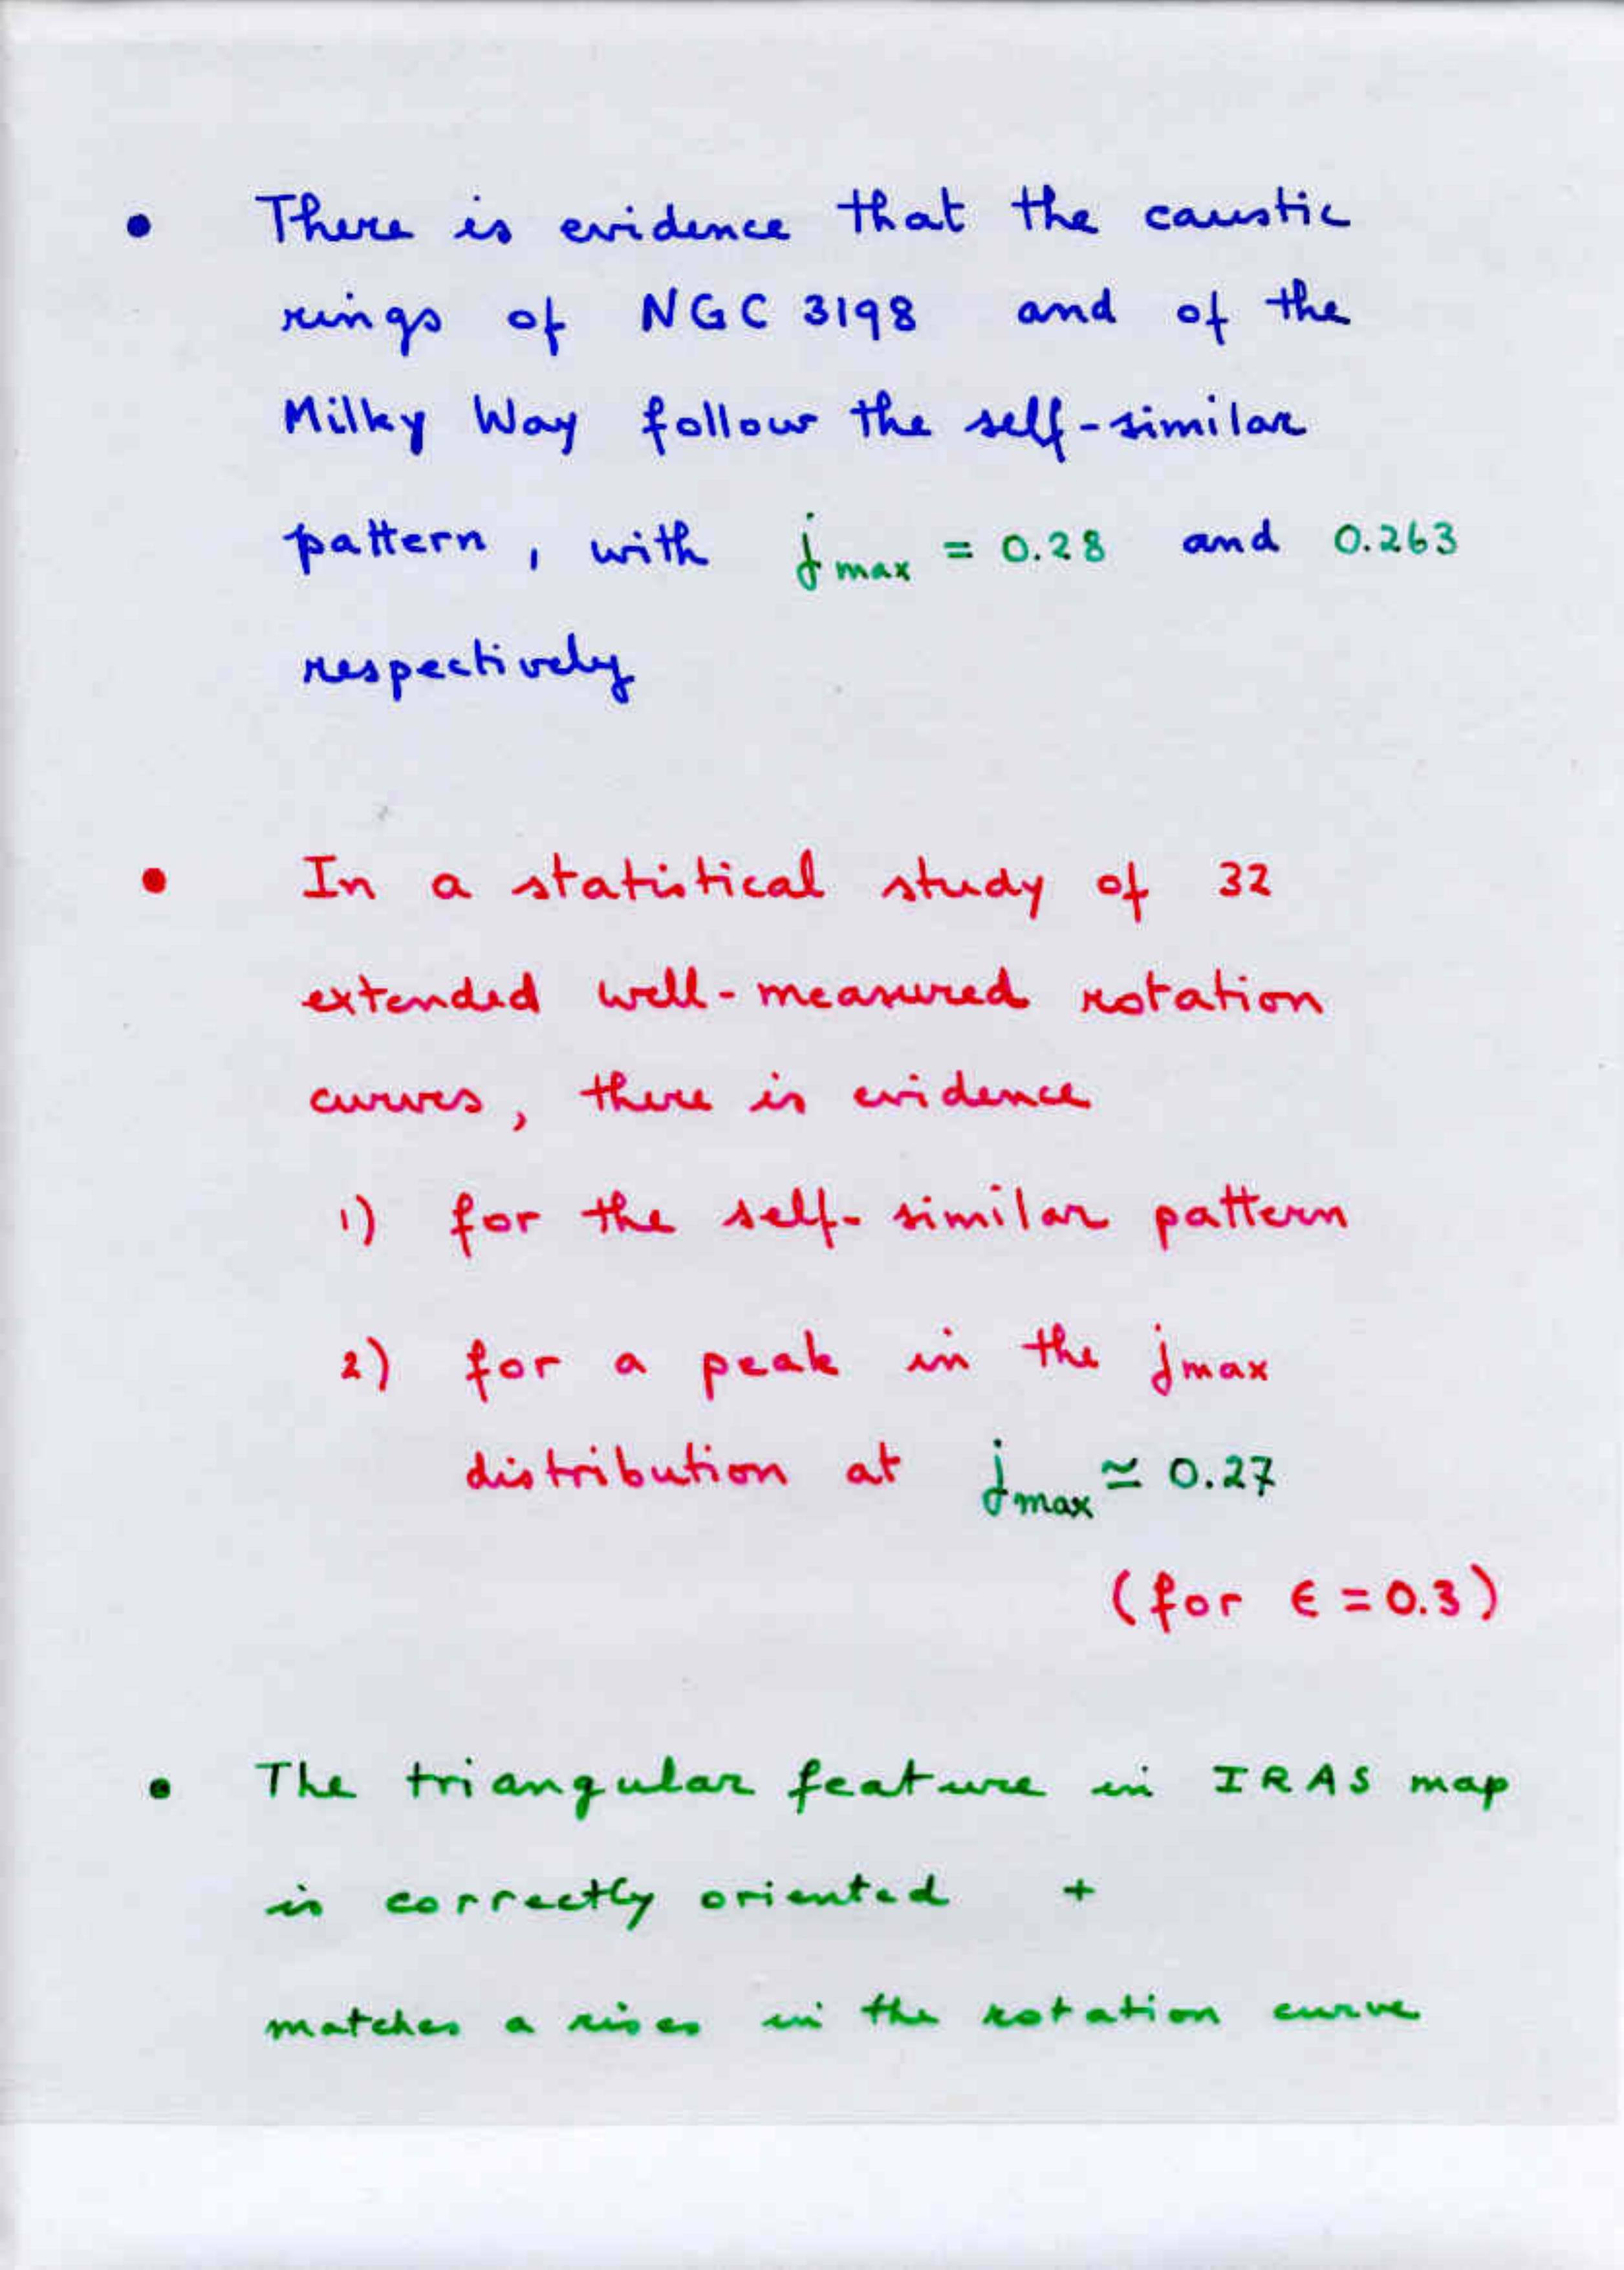 • There is evidence that the caustic
rings of NGC 3198 and of the
Milky Way follow the self-similar
pattern, with j max = 0.28 and 0.263
respectively
• In a statistical study of 32
extended well-measured rotation
curves, there is evidence
1) for the self-similar pattern
2) for a peak in the jmax
distribution at j max ≃ 0.27
(for ϵ = 0.3)
• The triangular feature in IRAS map
is correctly oriented +
matches a rises in the rotation curve